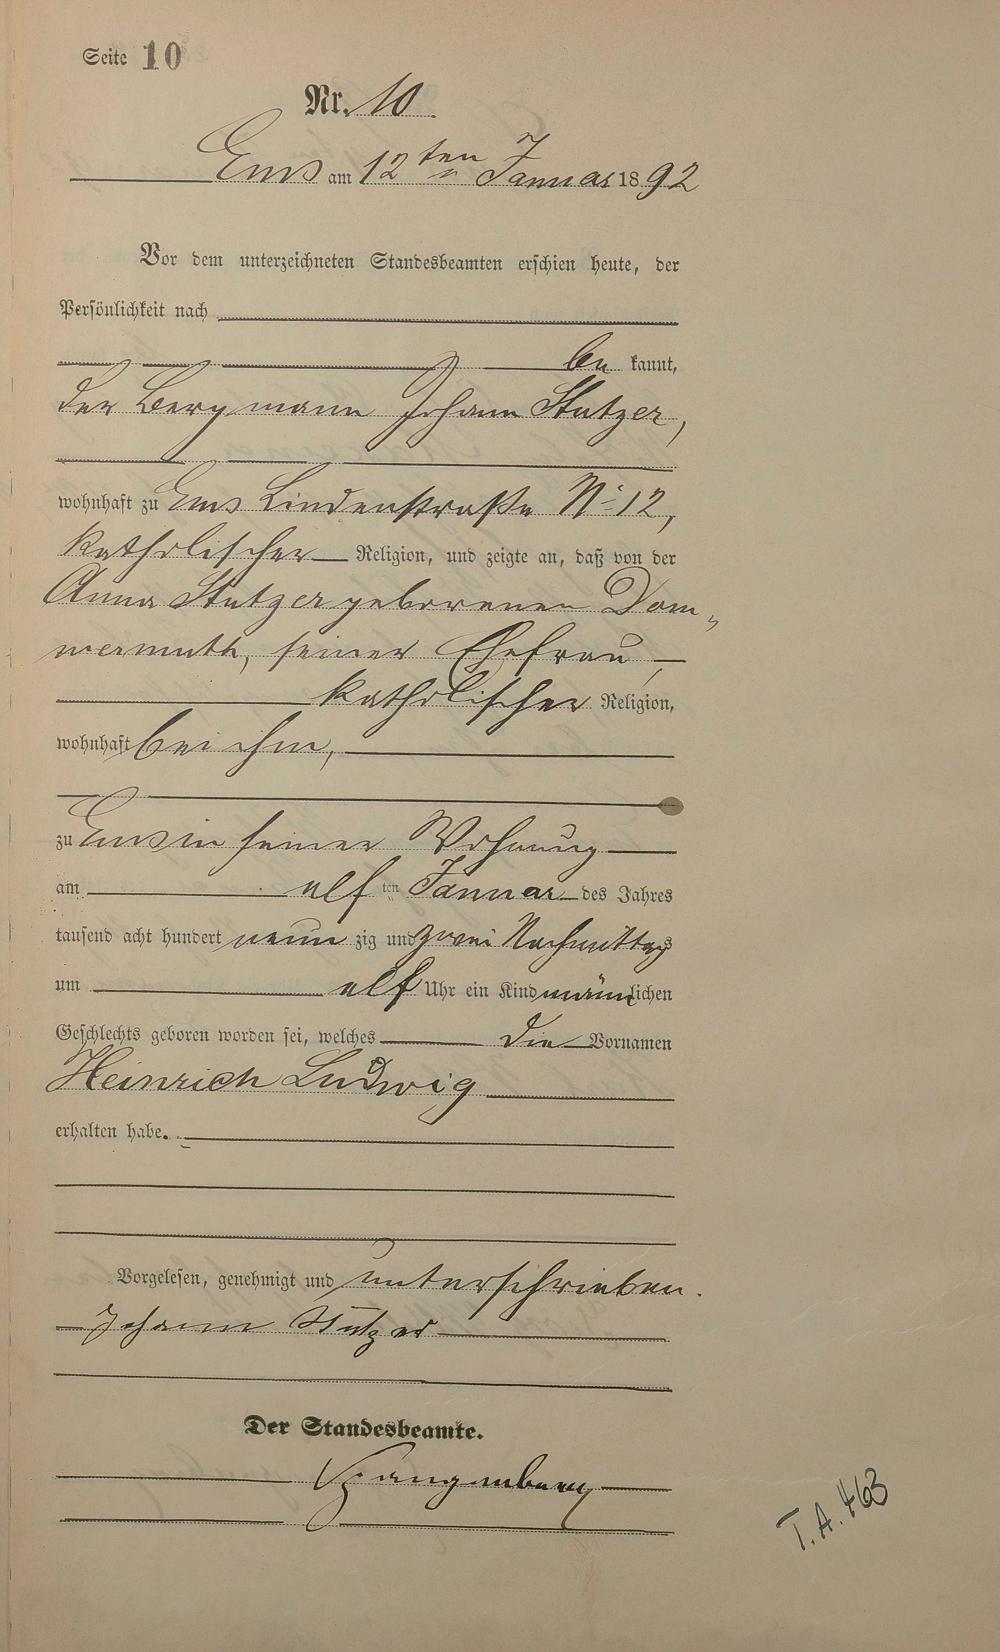 Seite 10
Nr. 10
Ems am 12ten Januar 1892
Vor dem unterzeichneten Standesbeamten erschien heute, der
Persönlichkeit nach
be kannt,
der Bergmann Johann Stutzer,
wohnhaft zu Ems Lindenstraße No 12,
katholischer Religion, und zeigte an, daß von der
Anna Stutzer geborenen Dom-
mermuth, seiner Ehefrau,
katholischer Religion,
wohnhaft bei ihm,
zu Ems in seiner Wohnung
am elf ten Januar des Jahres
tausend acht hundert neun zig und zwei Nachmittags
um elf Uhr ein Kind männlichen
Geschlechts geboren worden sei, welches die Vornamen
Heinrich Ludwig
erhalten habe.
Vorgelesen, genehmigt und unterschrieben.
Johann Stutzer
Der Standesbeamte.
Spangenberg
T.A. 463